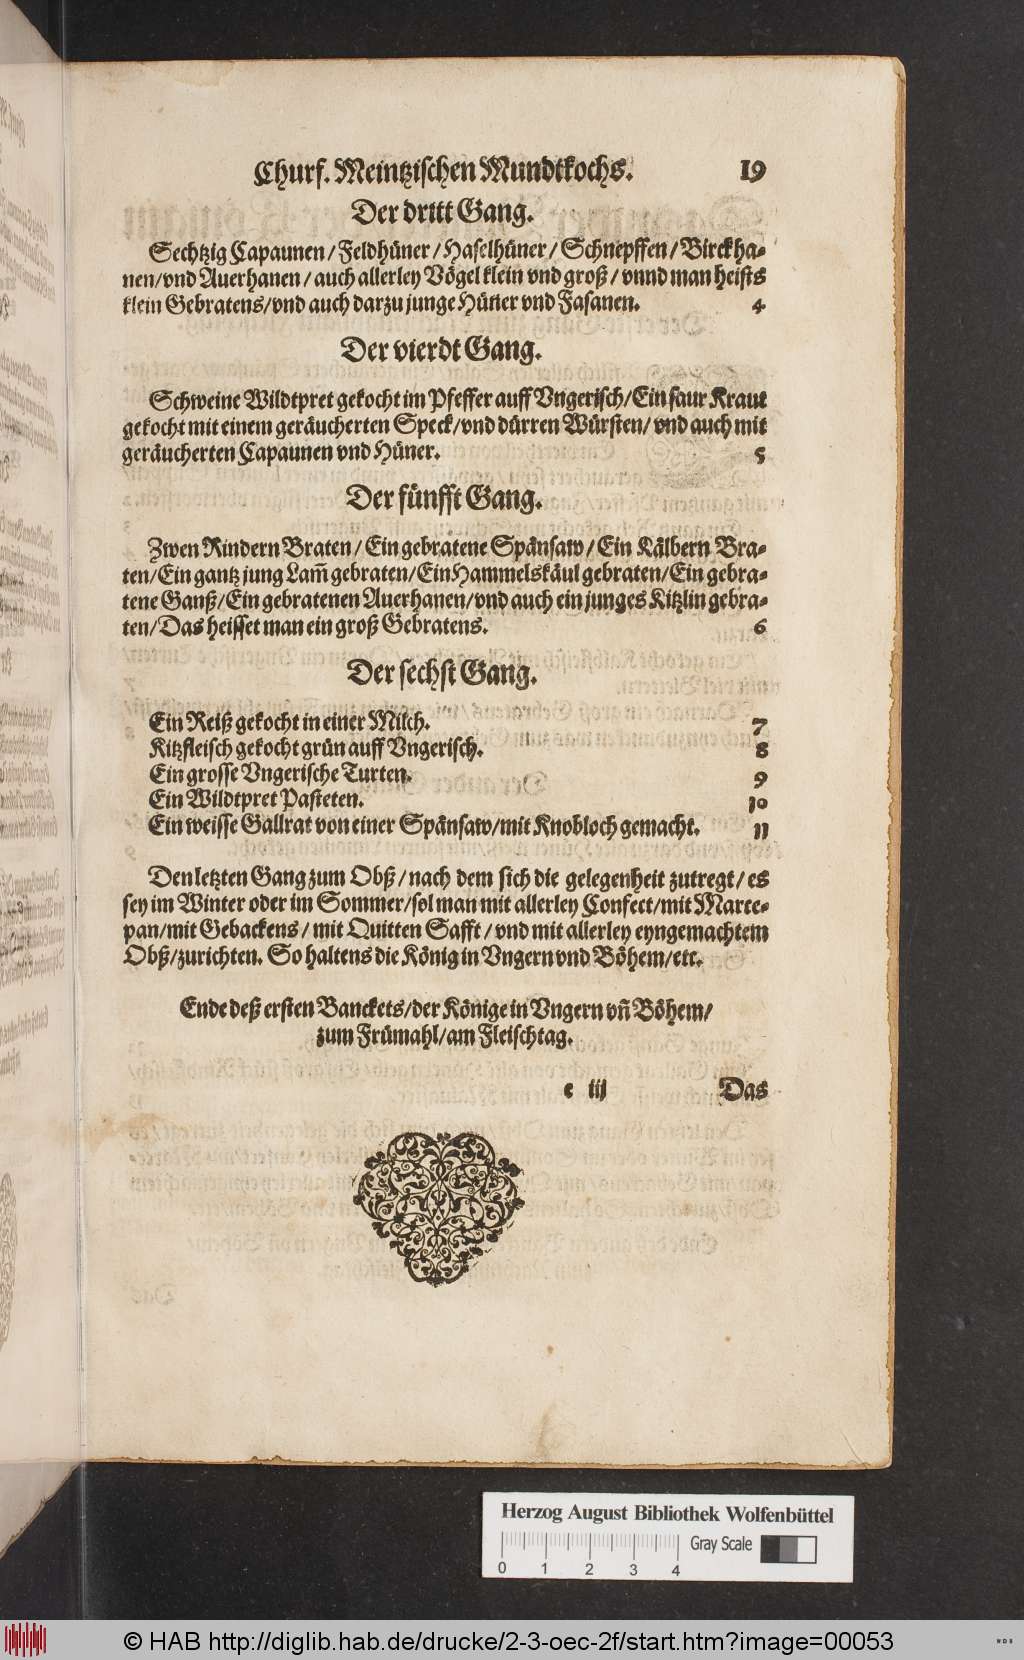 Churf. Meintzischen Mundtkochs. 19
Der dritt Gang.
Sechtzig Capaunen / Feldhüner / Haselhüner / Schnepffen / Birckha-
nen/vnd Auerhanen / auch allerley Vögel klein vnd groß / vnnd man heists
klein Gebratens/vnd auch darzu junge Hüner vnd Fasanen. 4
Der vierdt Gang.
Schweine Wildtpret gekocht im Pfeffer auff Vngerisch/Ein saur Kraut
gekocht mit einem geräucherten Speck/vnd dürren Würsten/ vnd auch mit
geräucherten Capaunen vnd Hüner. 5
Der fünfft Gang.
Zwen Rindern Braten / Ein gebratene Spänsaw / Ein Kälbern Bra-
ten/Ein gantz jung Lam̃ gebraten/Ein Hammelskäul gebraten/Ein gebra-
tene Ganß/Ein gebratenen Auerhanen/vnd auch ein junges Kitzlin gebra-
ten/Das heisset man ein groß Gebratens. 6
Der sechst Gang.
Ein Reiß gekocht in einer Milch. 7
Kitzfleisch gekocht grün auff Vngerisch. 8
Ein grosse Vngerische Turten. 9
Ein Wildtpret Pasteten. 10
Ein weisse Gallrat von einer Spänsaw/mit Knobloch gemacht. 11
Den letzten Gang zum Obß / nach dem sich die gelegenheit zutregt / es
sey im Winter oder im Sommer/sol man mit allerley Confect/mit Marce-
pan/mit Gebackens / mit Quitten Safft / vnd mit allerley eyngemachtem
Obß/zurichten. So haltens die König in Vngern vnd Böhem/etc.
Ende deß ersten Banckets/der Könige in Vngern vñ Böhem/
zum Frümahl/am Fleischtag.
e iij Das
Herzog August Bibliothek Wolfenbüttel
Gray Scale
0 1 2 3 4
© HAB http://diglib.hab.de/drucke/2-3-oec-2f/start.htm?image=00053